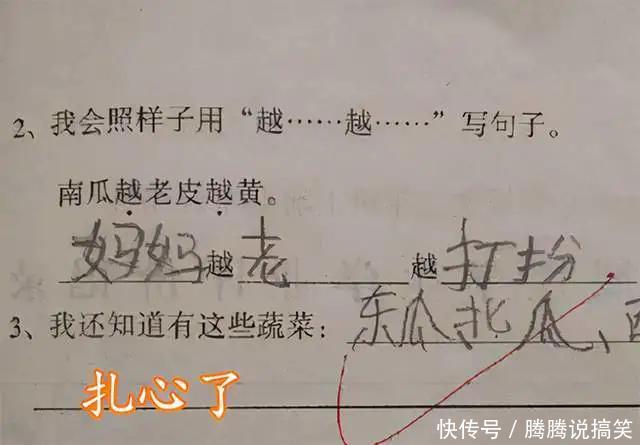 2、我会照样子用“越……越……”写句子。
南瓜越老皮越黄。
妈妈越老越打扮
3、我还知道有这些蔬菜：东瓜、北瓜、西
扎心了
快传号／腾腾说搞笑